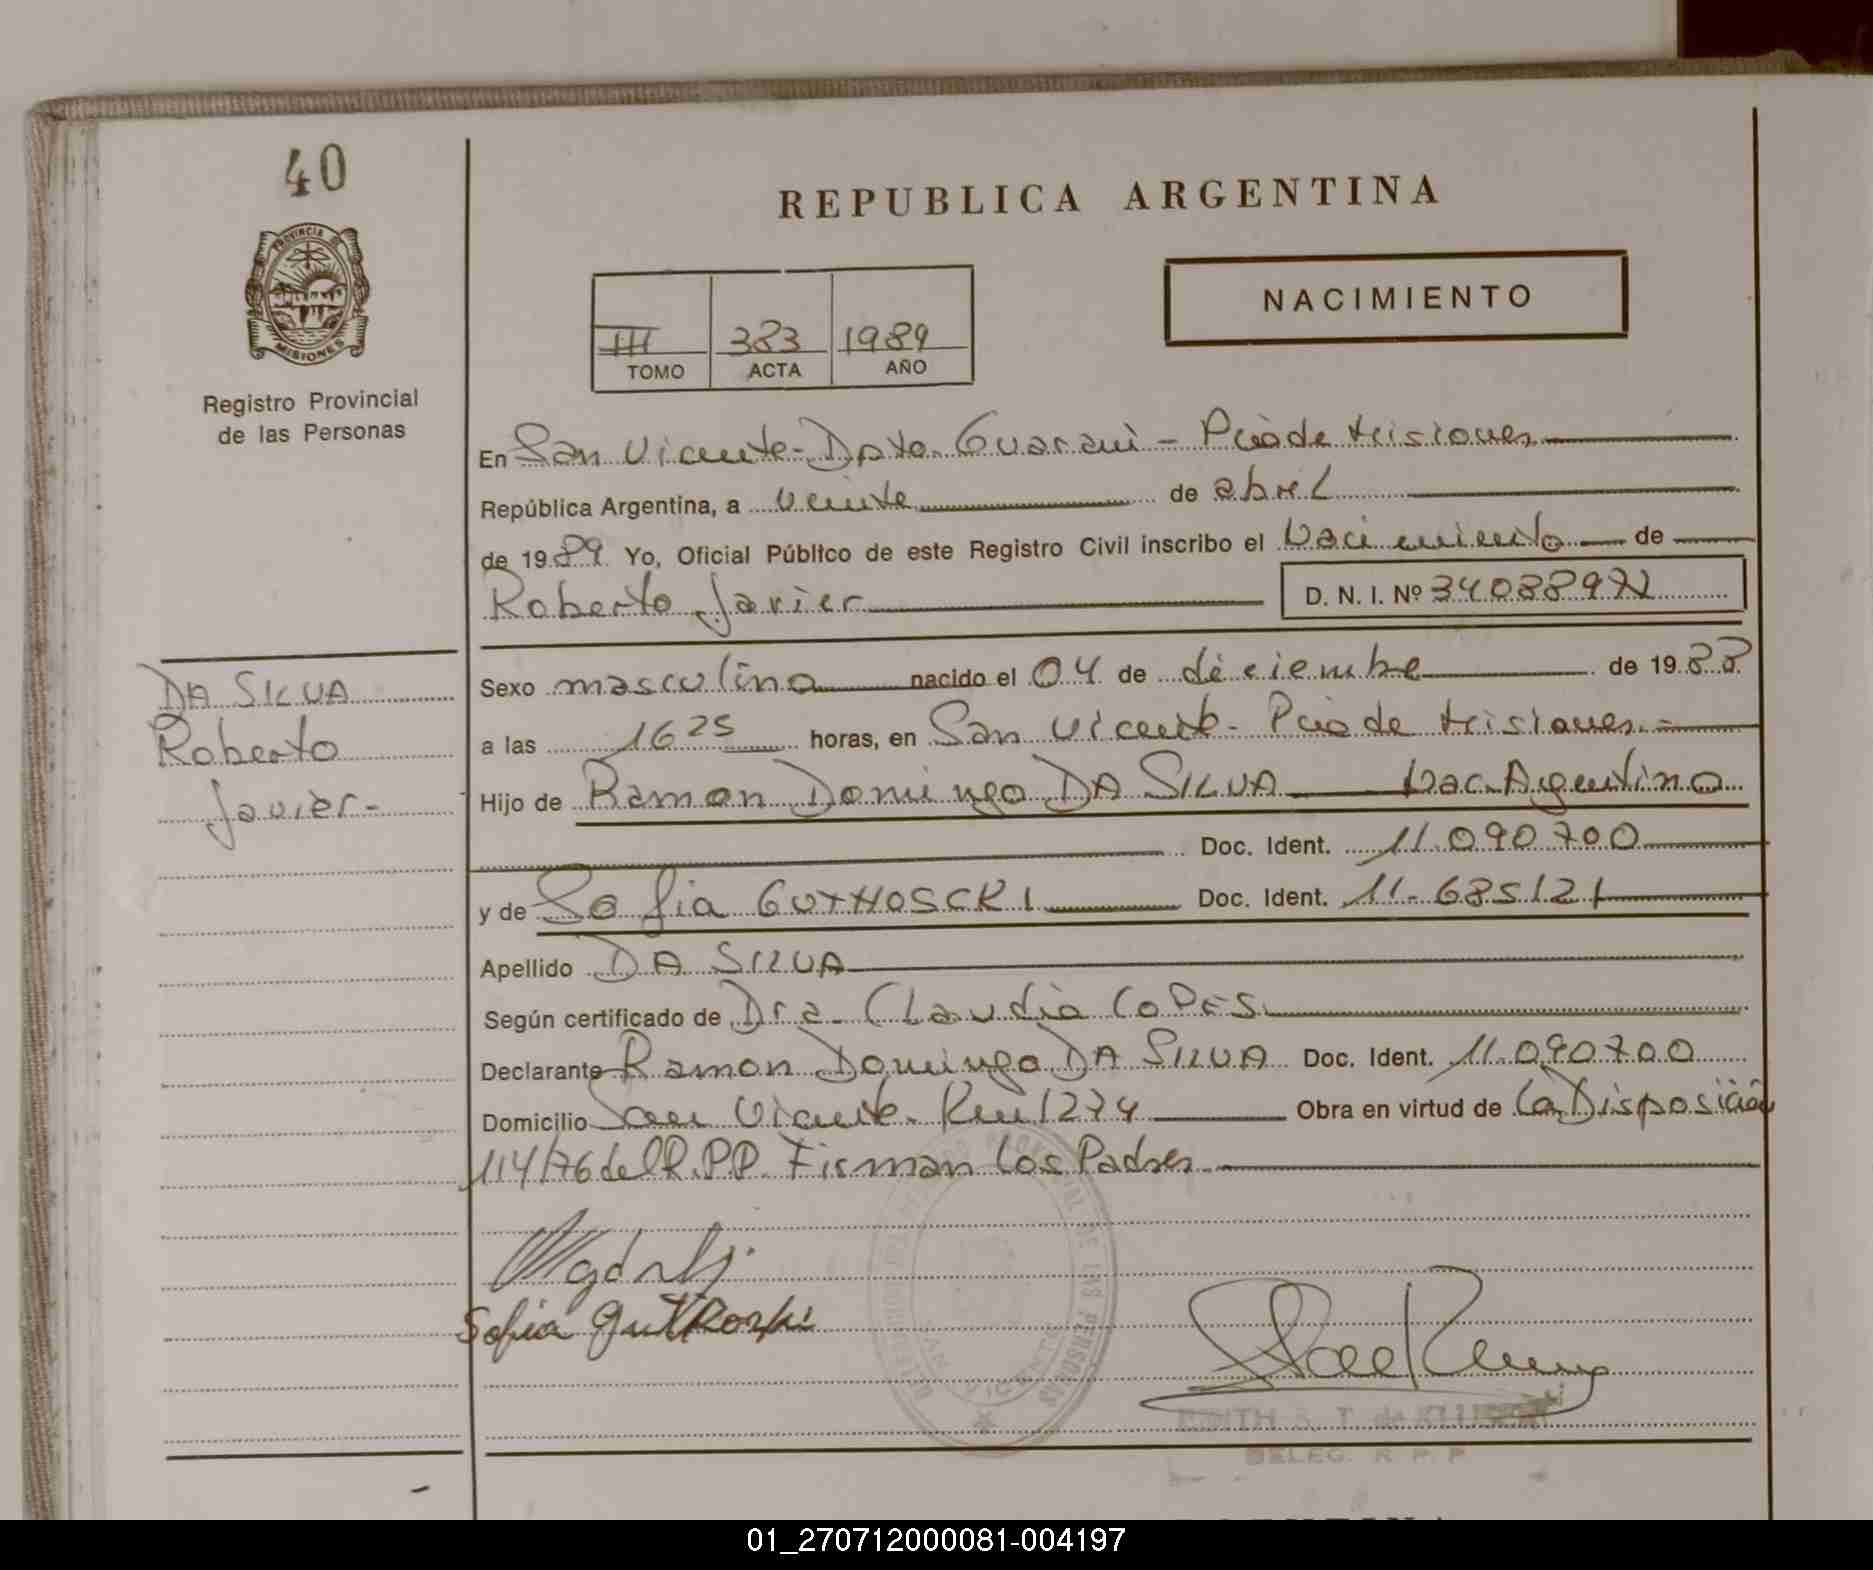 40
REPUBLICA ARGENTINA
PROVINCIA DE
MISIONES
Registro Provincial
de las Personas
III 383 1989
TOMO ACTA AÑO
NACIMIENTO
En San Vicente - Dpto. Guaraní - Pcia de Misiones
República Argentina, a veinte de abril
de 1989 Yo, Oficial Público de este Registro Civil inscribo el Nacimiento de
Roberto Javier D. N. I. Nº 34088972
DA SILVA
Roberto
Javier-
Sexo masculino nacido el 04 de diciembre de 1988
a las 16 25 horas, en San Vicente - Pcia de Misiones. =
Hijo de Ramon Domingo DA SILVA Nac. Argentino
Doc. Ident. 11.090700
y de Sofia GUTKOSCKI Doc. Ident. 11-685121
Apellido DA SILVA
Según certificado de Dra. Claudia COPES
Declarante Ramon Domingo DA SILVA Doc. Ident. 11.090700
Domicilio San Vicente. Km 1274 Obra en virtud de La Disposición
114/76 del R.P.P. Firman Los Padres
Sofia
PROVINCIAL DE LAS PERSONAS
SAN VICENTE
EDITH
DELEG. R. P. P.
01_270712000081-004197